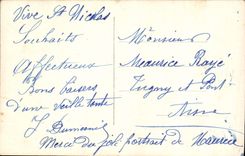 Vive St Nicolas
Souhaits
Affectueux
Bons baisers
d'une vieille tante
J. Dumenil
Monsieur
Maurice Rayé
Tugny et Pont
Aisne
Merci du joli portrait de Maurice